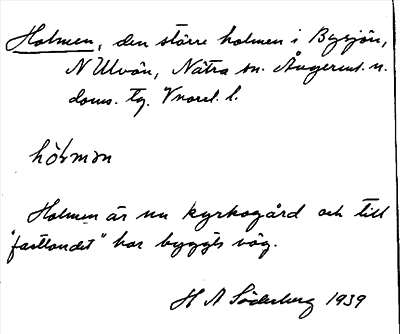 Holmen, den större holmen i Bysjön,
N Ulvön, Nätra sn. Ångerml. n.
doms. tg. Vnorrl. l.
hòɫmɘn
Holmen är nu kyrkogård och till
"fastlandet" har byggts väg.
H A Söderberg 1939